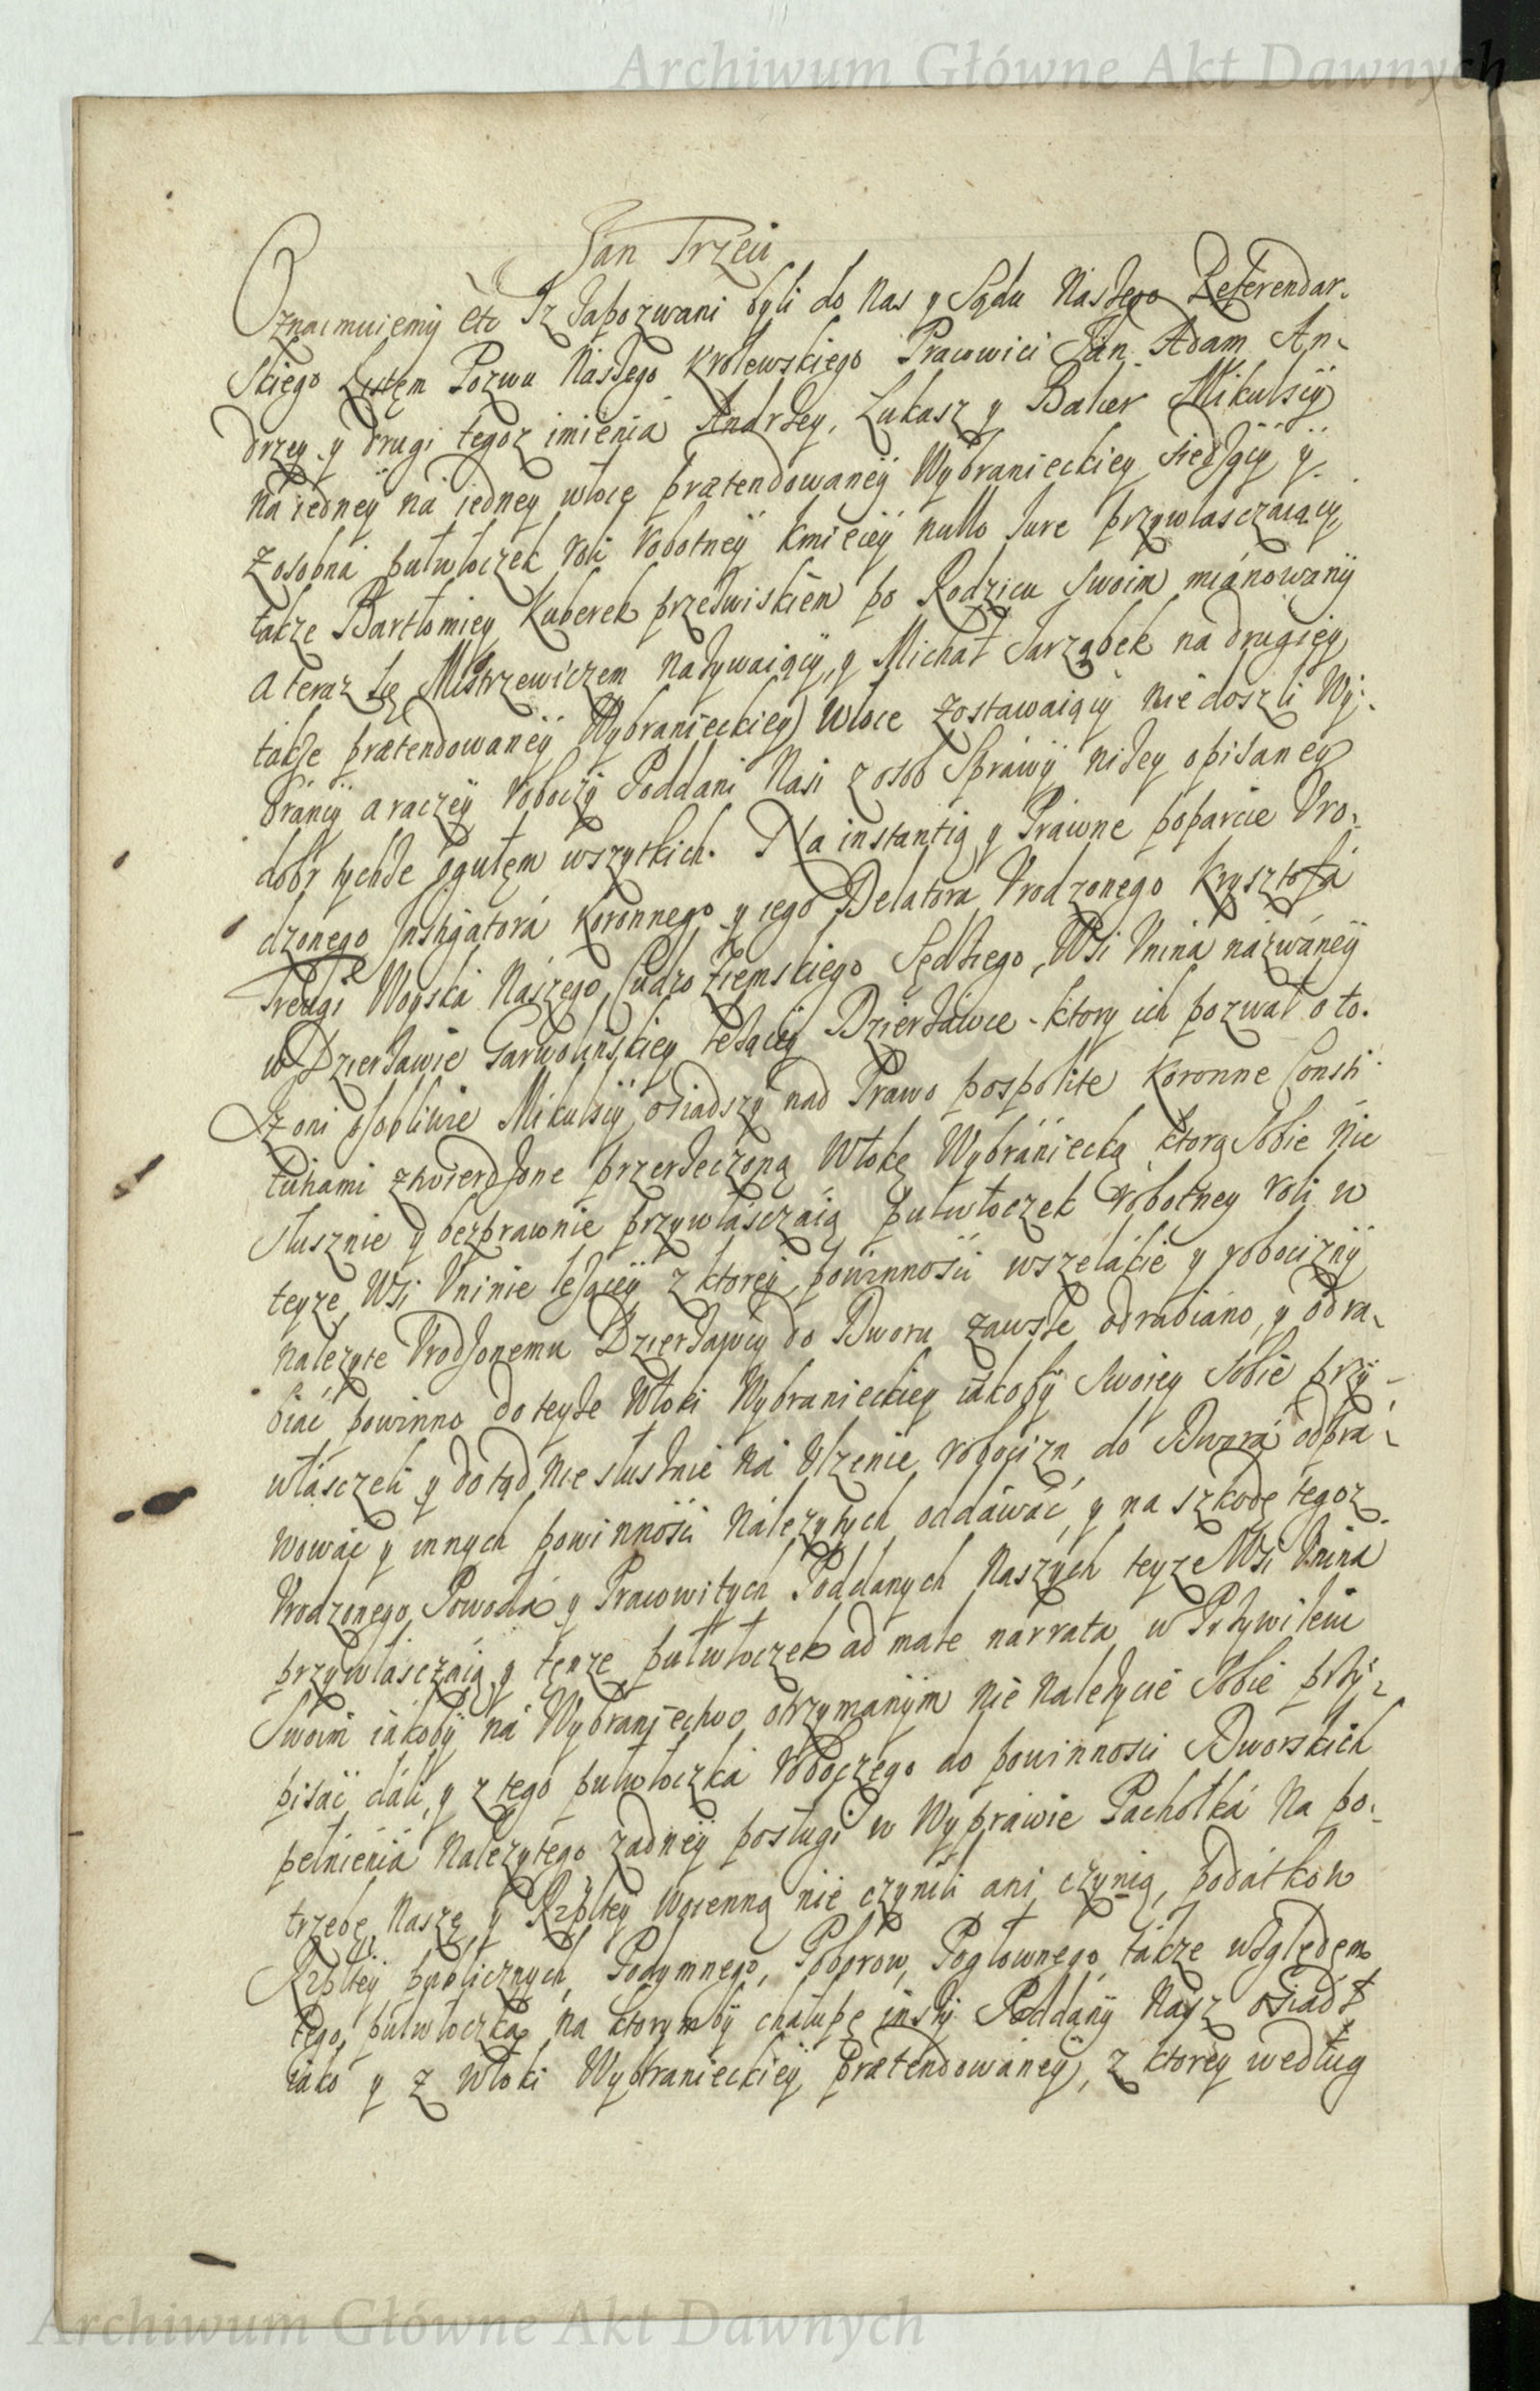 Archiwum Główne Akt Dawnych
Jan Trzeci
Oznaimuiemÿ etc Iz Zapozwani byli do Nas y Sądu Naszego Referendar-
skiego Listęm Pozwu Naszego Krolewskiego Pracowici Jan Adam An-
drzey y drugi tegoz imienia Andrzey, Lukasz y Balcer Mikulsciÿ
na iedneÿ na iedney włoce prætendowaneÿ Wybranieckiey siedzącÿ y
z osobna pułwłoczek roli robotneÿ kmiecieÿ nullo Jure przywłasczaiącÿ,
takze Bartłomiey Kuberek przezwiskiem po Rodzicu swoim mianowanÿ
a teraz się Mistrzewiczem nazywaiącÿ, y Michał Jarząbek na drugieÿ
takze prætendowaneÿ Wybranieckieÿ Włoce zostawaiącÿ nie doszli Wÿ-
brancÿ a raczeÿ roboczÿ Poddani Nasi z osob Sprawÿ nizey opisaney
dobr tychze ogułęm wszytkich. Na instantią y Prawne poparcie Vro-
dzonego Instigatora Koronnego y iego Delatora Vrodzonego Krysztofa
Treugi Woyska Naszego Cudzoziemskiego Sędziego, Wsi Vnina nazwaneÿ
w Dzierzawie Garwolinskiey lezącÿ Dzierzawce - ktory ich pozwał o to.
Iz oni osobliwie Mikulsciÿ osiadszÿ nad Prawo pospolite Koronne Consti-
tutiami ztwierdzone przerzeczoną Włokę Wybraniecką ktorą Sobie nie
słusznie y bezprawnie przywłasczaią pułwłoczek robotney roli w
teyze Wsi Vninie lezącieÿ z ktoreÿ powinnosci wszelakie y robociznÿ
nalezyte Vrodzonemu Dzierzawcÿ do Dworu zawsze odrabiano, y odra-
biać powinno do teyze Włoki Wybranieckiey iakobÿ Swoiey Sobie przÿ-
własczeli y do tąd nie słusznie na Vlzenie robocizn do Dwora odpra-
wować y innych powinnosci nalezytych oddawać, y na szkodę tegoz
Vrodzonego Powoda y Pracowitych Poddanych Naszych teyze Wsi Vnina
przywłasczaią, y tenze pułwłoczek ad male narrata w Przywileiu
Swoim iakobÿ na Wybraniectwo otrzymanÿm nie nalezycie Sobie przÿ-
pisać dali, y z tego pułwłoczka roboczego do powinnosci Dworskich
pełnienia nalezytego zadneÿ posługi w Wyprawie Pachołka na po-
trzebę Naszę y Rzpltey woienną nie czynili ani czynią, podatkow
Rzpltey publicznych, Podymnego, Poborow, Pogłownego takze względem
tego pułwłoczka na ktorymbÿ chałupę inszÿ Poddanÿ Nasz osiadł
iako y z Włoki Wybranieckieÿ prætendowaneÿ, z ktorey według
Archiwum Główne Akt Dawnych